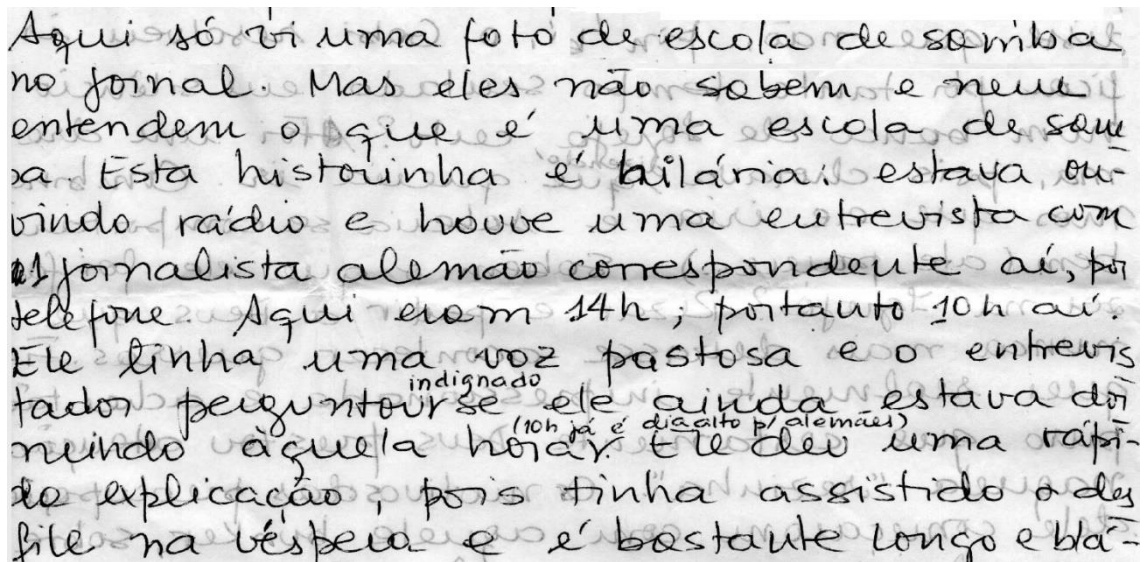 Aqui só vi uma foto de escola de samba
no jornal. Mas eles não sabem e nem
entendem o que é uma escola de sam
ba. Esta historinha é hilária: estava ou-
vindo rádio e houve uma entrevista com
1 jornalista alemão correspondente aí, por
telefone. Aqui eram 14h; portanto 10h aí.
Ele tinha uma voz pastosa e o entrevis
tador perguntou indignado se ele ainda estava dor
mindo àquela hora (10h já é dia alto p/ alemães). Ele deu uma rápi-
da explicação, pois tinha assistido o des
file na véspera e é bastante longo e blá-